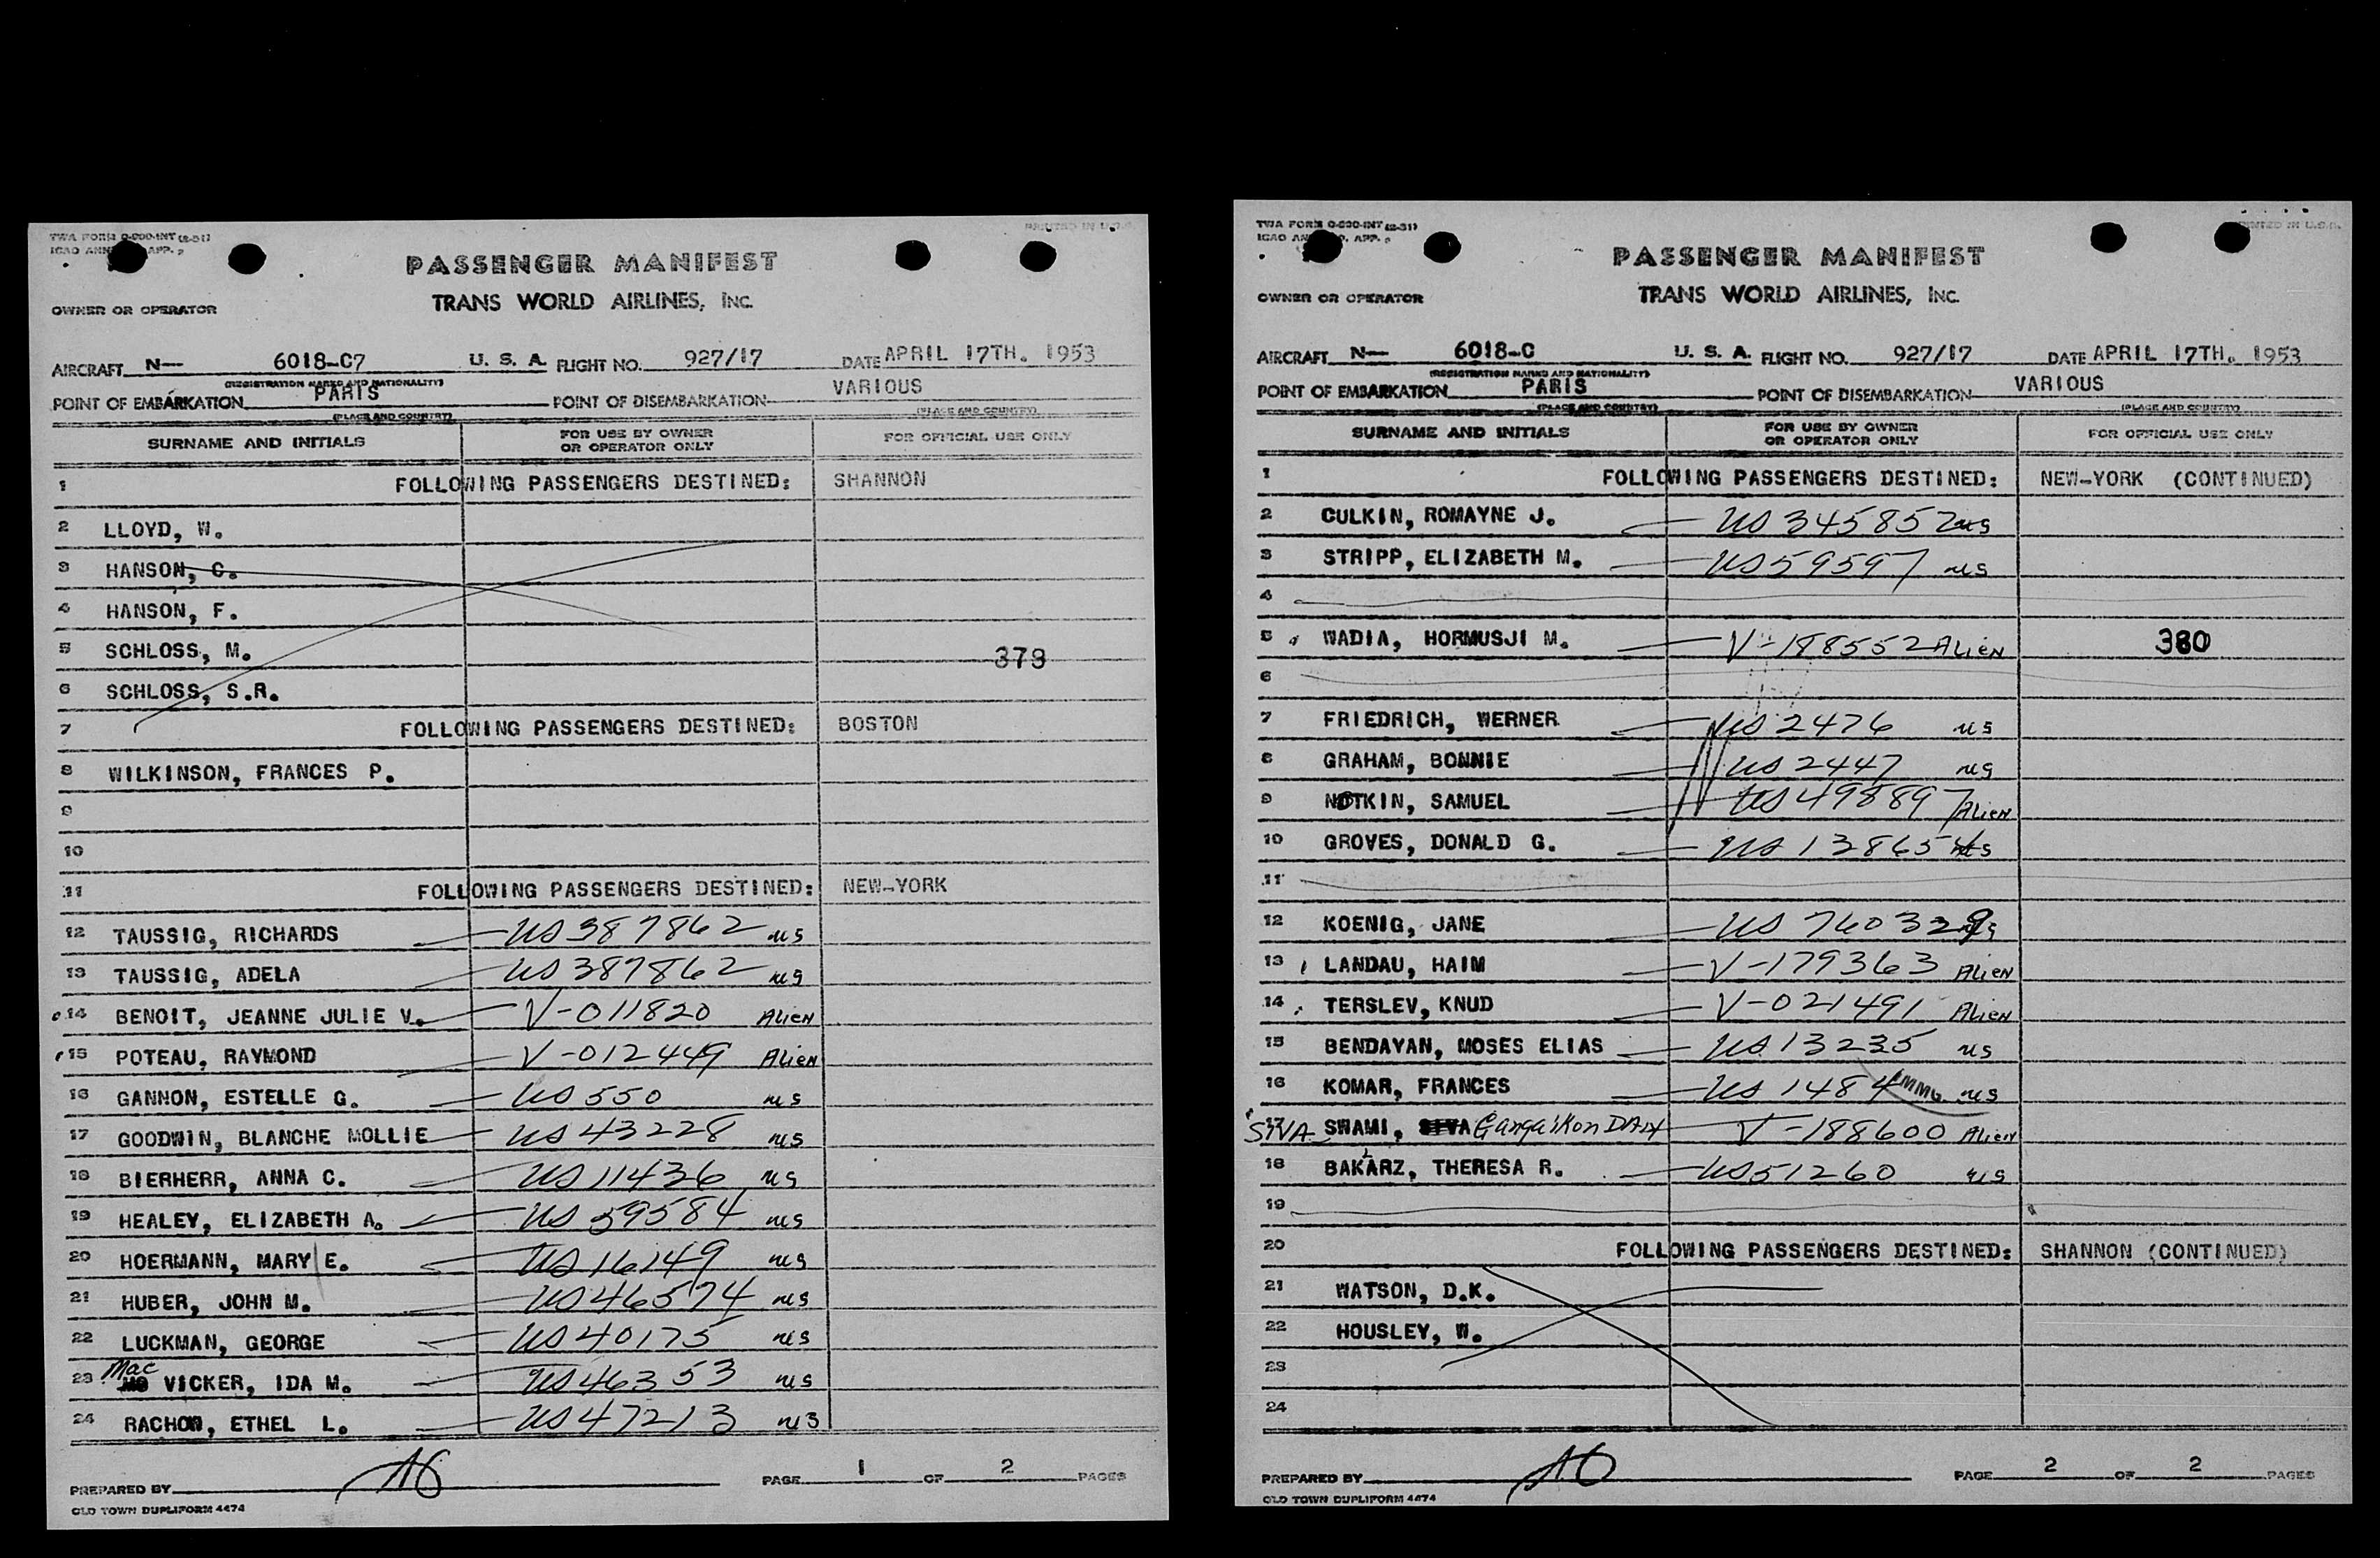 TWA FORM O-900-INT (2-51)
PRINTED IN U.S.A.
ICAO ANN APP.
PASSENGER MANIFEST
OWNER OR OPERATOR
TRANS WORLD AIRLINES, INC.
AIRCRAFT N— 6018-C7 U. S. A. FLIGHT NO. 927/17 DATE APRIL 17TH. 1953
(REGISTRATION MARKS AND NATIONALITY)
POINT OF EMBARKATION PARIS POINT OF DISEMBARKATION VARIOUS
(PLACE AND COUNTRY) (PLACE AND COUNTRY)
SURNAME AND INITIALS FOR USE BY OWNER OR OPERATOR ONLY FOR OFFICIAL USE ONLY
1 FOLLOWING PASSENGERS DESTINED: SHANNON
2 LLOYD, W.
3 HANSON, C.
4 HANSON, F.
5 SCHLOSS, M. 379
6 SCHLOSS, S.R.
7 FOLLOWING PASSENGERS DESTINED: BOSTON
8 WILKINSON, FRANCES P.
9
10
11 FOLLOWING PASSENGERS DESTINED: NEW-YORK
12 TAUSSIG, RICHARDS US 387862 US
13 TAUSSIG, ADELA US 387862 US
14 BENOIT, JEANNE JULIE V. V-011820 ALIEN
15 POTEAU, RAYMOND V-012449 ALIEN
16 GANNON, ESTELLE G. US 550 US
17 GOODWIN, BLANCHE MOLLIE US 43228 US
18 BIERHERR, ANNA C. US 11436 US
19 HEALEY, ELIZABETH A. US 59584 US
20 HOERMANN, MARY E. US 16149 US
21 HUBER, JOHN M. US 46574 US
22 LUCKMAN, GEORGE US 40175 US
23 Mac VICKER, IDA M. US 46353 US
24 RACHON, ETHEL L. US 47213 US
PREPARED BY PAGE 1 OF 2 PAGES
OLD TOWN DUPLIFORM 4474
TWA FORM O-900-INT (2-51)
PRINTED IN U.S.A.
ICAO AN APP.
PASSENGER MANIFEST
OWNER OR OPERATOR
TRANS WORLD AIRLINES, INC.
AIRCRAFT N— 6018-C U. S. A. FLIGHT NO. 927/17 DATE APRIL 17TH. 1953
(REGISTRATION MARKS AND NATIONALITY)
POINT OF EMBARKATION PARIS POINT OF DISEMBARKATION VARIOUS
(PLACE AND COUNTRY) (PLACE AND COUNTRY)
SURNAME AND INITIALS FOR USE BY OWNER OR OPERATOR ONLY FOR OFFICIAL USE ONLY
1 FOLLOWING PASSENGERS DESTINED: NEW-YORK (CONTINUED)
2 CULKIN, ROMAYNE J. US 345852 US
3 STRIPP, ELIZABETH M. US 59597 US
4
5 WADIA, HORMUSJI M. V-188552 ALIEN 380
6
7 FRIEDRICH, WERNER US 2476 US
8 GRAHAM, BONNIE US 2447 US
9 NOTKIN, SAMUEL US 498897 ALIEN
10 GROVES, DONALD G. US 13865 US
11
12 KOENIG, JANE US 760329 US
13 LANDAU, HAIM V-179363 ALIEN
14 TERSLEV, KNUD V-021491 ALIEN
15 BENDAYAN, MOSES ELIAS US 13235 US
16 KOMAR, FRANCES US 1484 IMMG. US
17 SIVA SWAMI, SIVA Gangaikon DAN V-188600 ALIEN
18 BAKARZ, THERESA R. US 51260 US
19
20 FOLLOWING PASSENGERS DESTINED: SHANNON (CONTINUED)
21 WATSON, D.K.
22 HOUSLEY, W.
23
24
PREPARED BY PAGE 2 OF 2 PAGES
OLD TOWN DUPLIFORM 4474